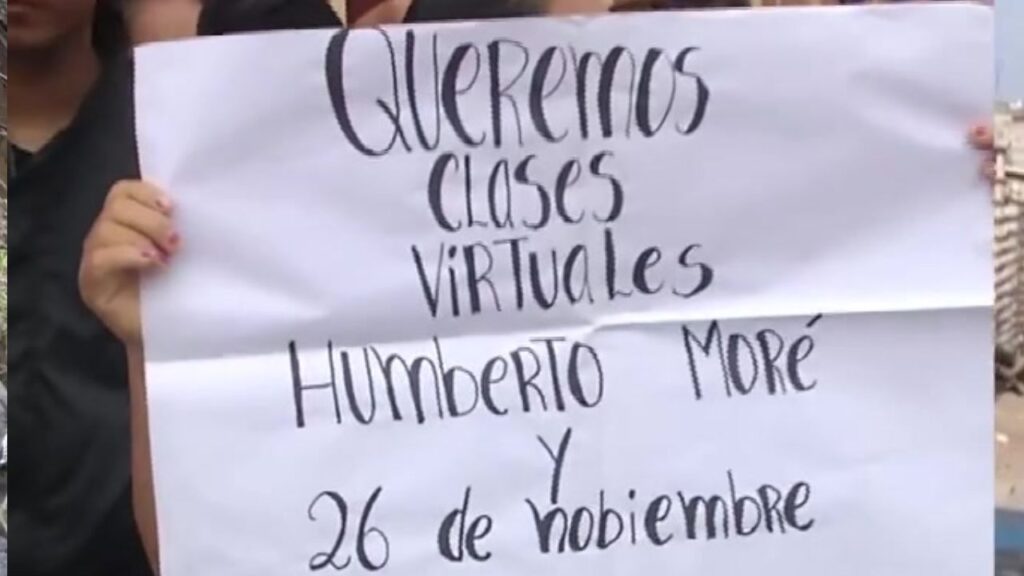 Queremos
clases
virtuales
Humberto Moré
y
26 de nobiembre